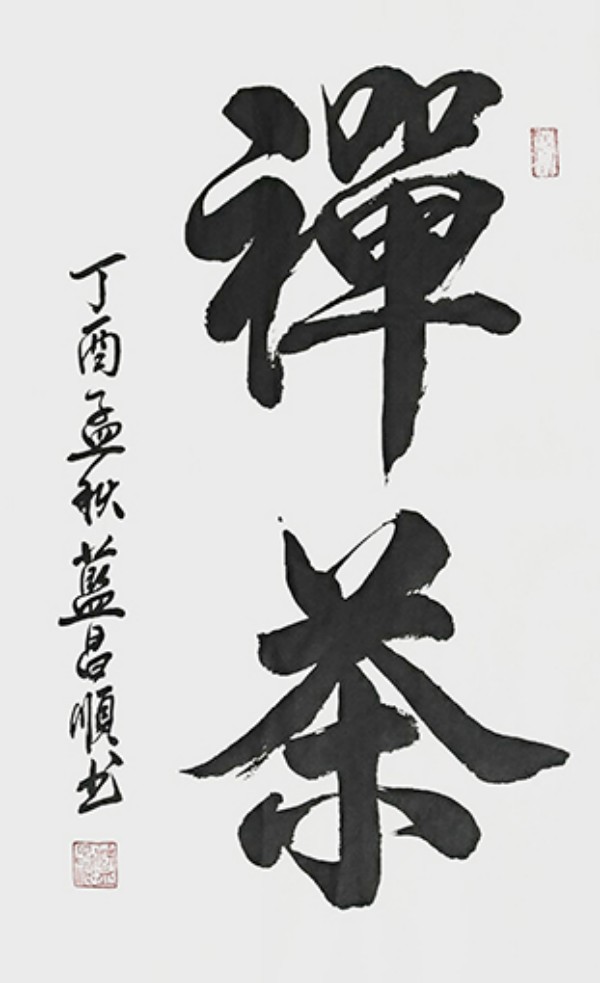 禪茶
丁酉孟秋藍昌順书